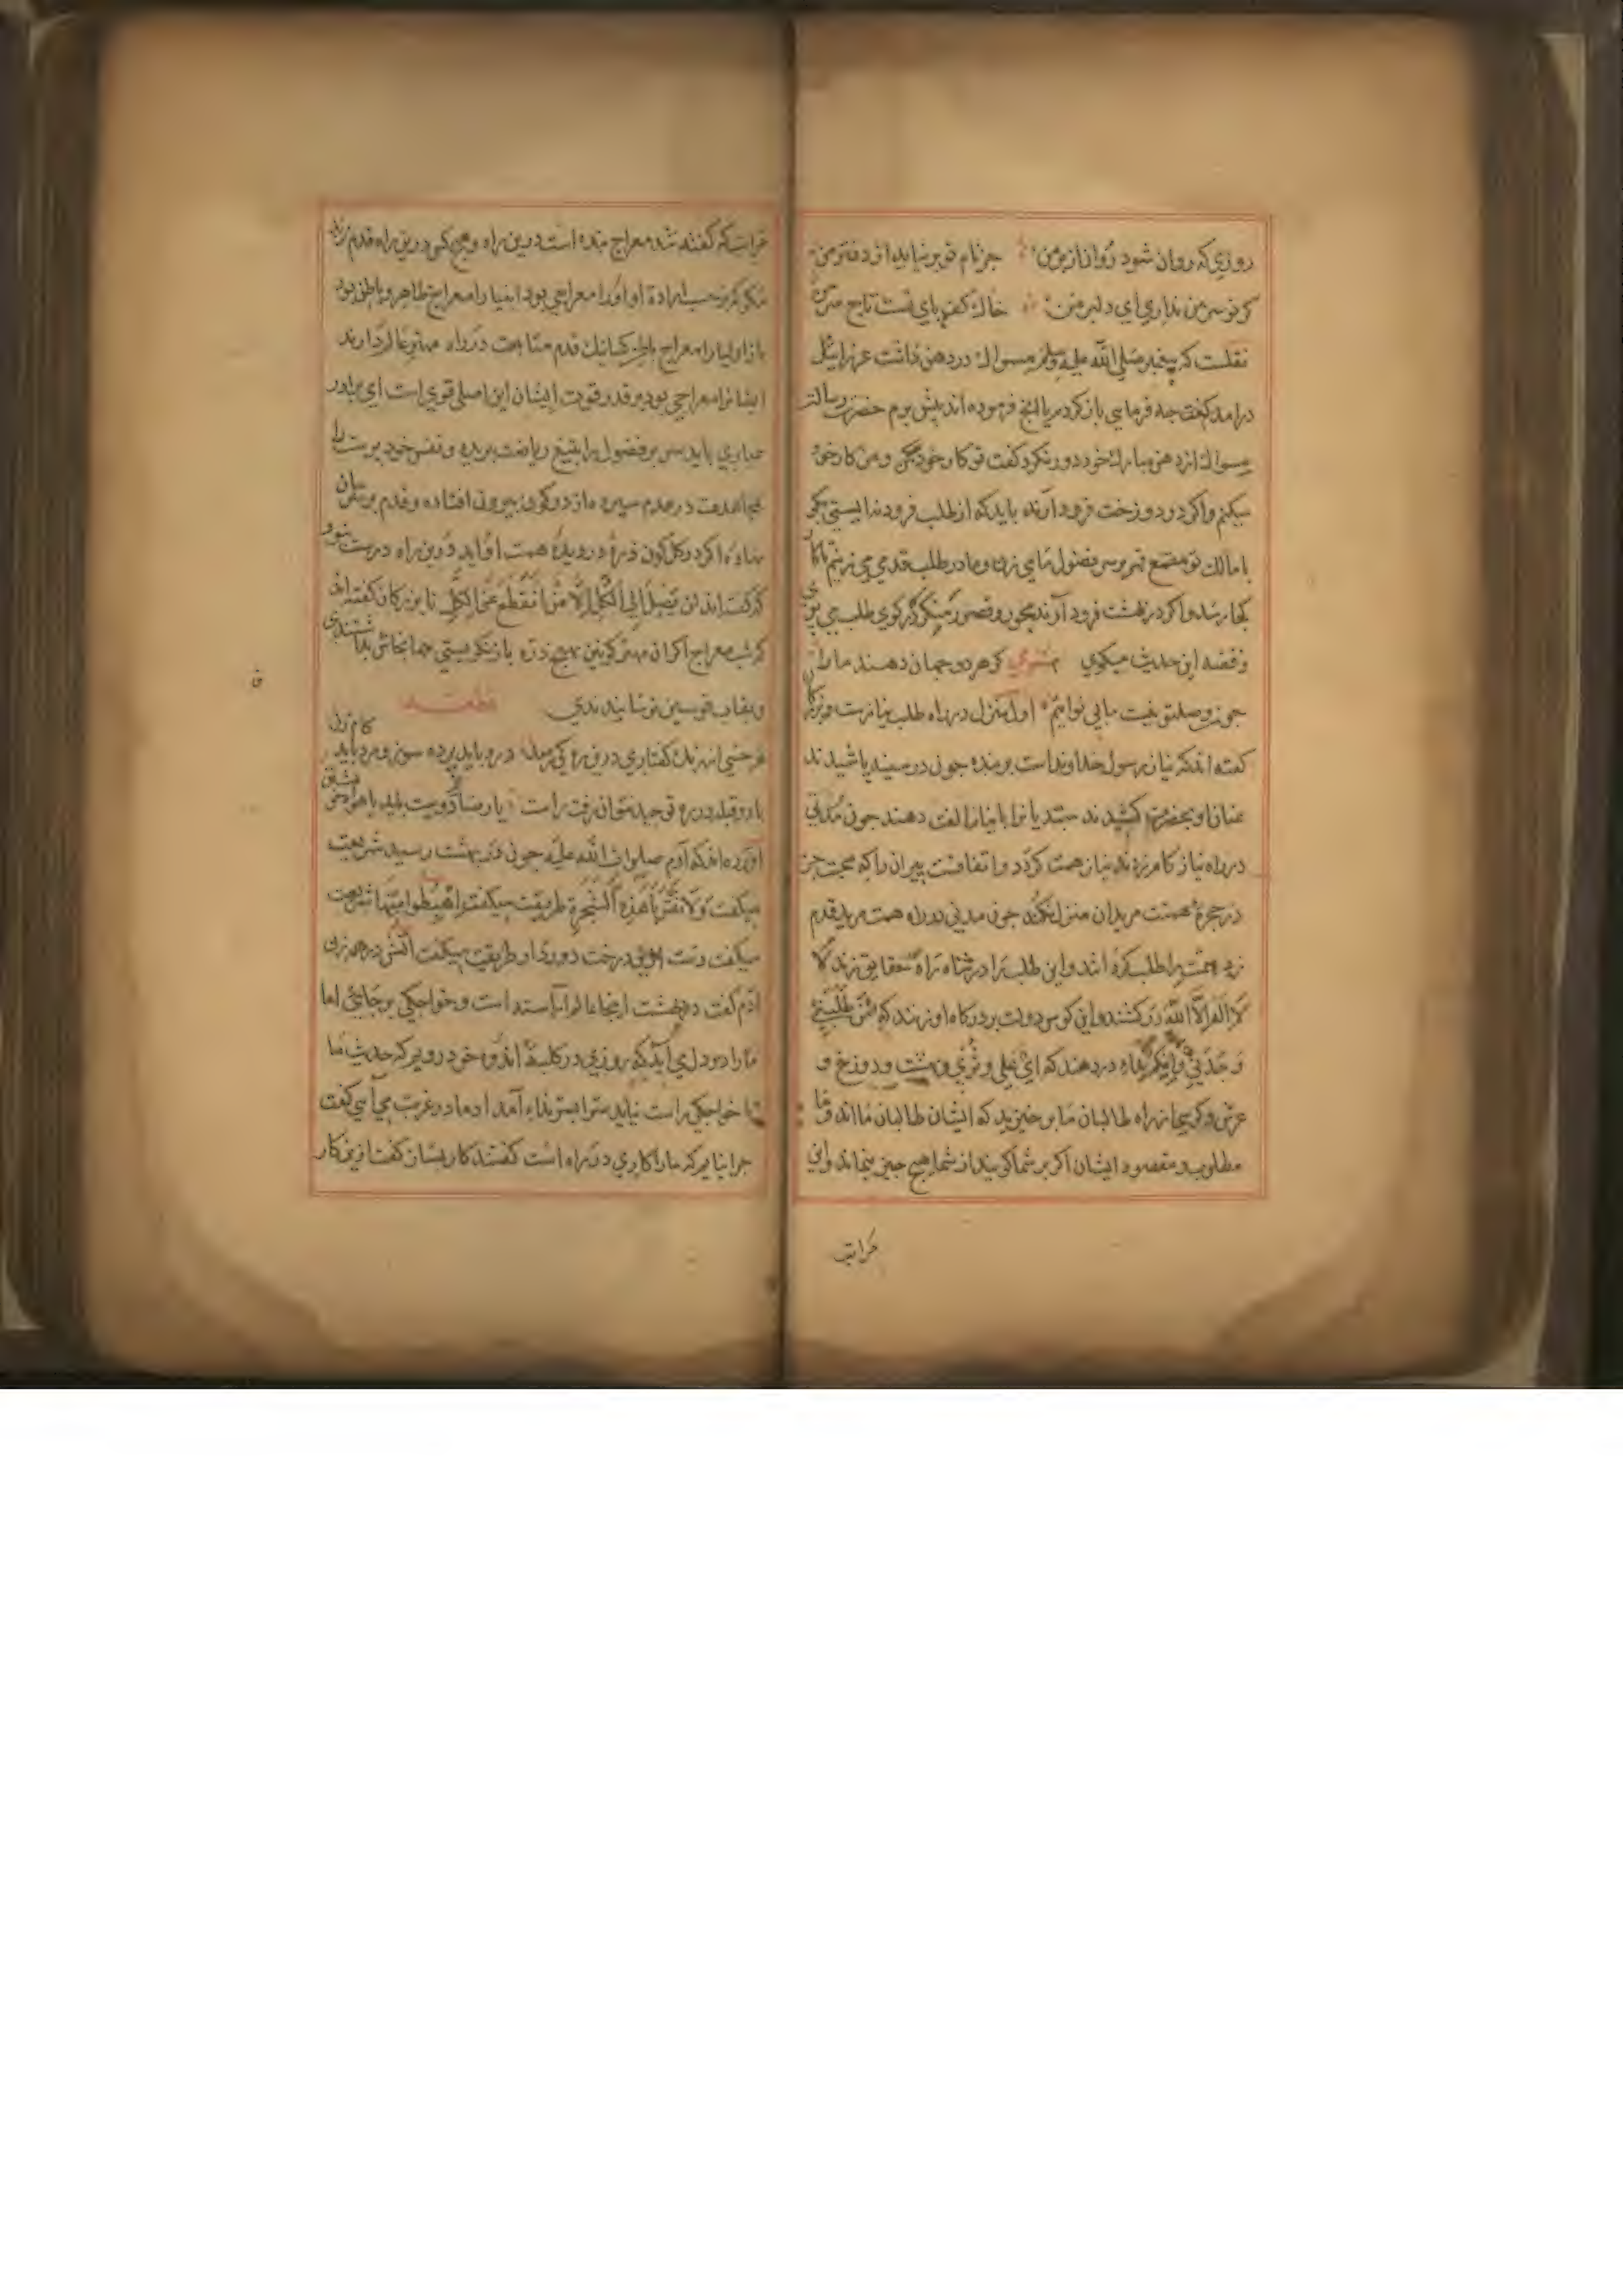 روزی که روان شود روان از بر من جز نام تو بر نیاید از دفتر من
کر تو سر من نداری ای دلبر من خاک کف پای تست تاج سر من
نقلست که پیغمبر صلی الله علیه وسلم مسواک در دهن داشت عزرائیل
درامد کفت جه فرمایی باز کردم یا انچ فرموده اند پیش برم حضرت رسالت
مسواک از دهن مبارک خود دور نکرد کفت تو کار خود میکن و من کار خود
میکنم واکر در دوزخت فرود آرند باید که از طلب فرود نه ایستی بکو
یا مالک تو مقمع قهر بر سر فضول مای زن و ما در طلب قدمی می زنیم تا کار
کجا رسد واکر در بهشت فرود آرند بحور و قصور منکر کرد کوی طلب می پوی
و قصه این حدیث میکوی مثنوی کر هر دو جهان دهند ما را
جون وصل تو نیست بی نواییم اول منزل در راه طلب نیازست و بزرکان
کفته اند که نیاز رسول خداونداست بر بنده جون در سینه پاشیدند
عنان او بحضرت کشیدند مبتدیانرا با نیاز الفت دهند جون مدتی
در راه نیاز کام زدند نیاز همت کردد و اتفاقست پیران را که محبت جز
در حجرهٔ همت مریدان منزل نکند جون مدتی در راه همت مرید قدم
زد همت را طلب کرده اند و این طلب را در شاه راه حقایق زند لا
لا اله الا الله در کشند و این کوس دولت بر درکاه او زنند که من طلبنی
وجدنی و این ندا در دهند که ای علی و ثری و بهشت و دوزخ و
عرش و کرسی از راه طالبان ما بر خیزید که ایشان طالبان ما اند و ما
مطلوب و مقصود ایشان اکر بر شما کویند از شما هیج جیز نماند و این
مراتب
که کفته شد معراج بنده است درین راه و هیج کس درین راه قدم نزند
مکر که بر حسب ارادة او اورا معراجی بود انبیا را معراج ظاهر و باطن بود
باز اولیا را معراج باطن کسانیک قدم متابعت در راه مهتر عالم دارند
ایشانرا معراجی بود بر قدر قوت ایشان این اصلی قوی است ای برادر
باید سر بر فضول را بتیغ ریاضت بریده و نفس خود پرست را
بمجاهدت در عدم سپرده از دو کون بیرون افتاده و قدم بر
نهاده اکر در کل کون ذرهٔ در دیدهٔ همت او آید درین راه درست نبود
که کفته اند لن تصل الی الکل الا من انقطع عن الکل تا بزرکان کفته اند
که شب معراج اکر ان مهتر کونین بهیج ذره باز نکریستی همانجاش بداشتندی
و بقاب قوسین نرسانیدندی قطعه
هر خسی از رنک کفتاری درین ره کی رسد درد باید پرده سوز و مرد باید کام زن
با دو قبله در ره توحید نتوان رفت راست یا رضای دوست باید یا هوای خویشتن
آورده اند که آدم صلوات الله علیه جون در بهشت رسید شریعت
میکفت ولا تقربا هذه الشجرة طریقت میکفت اهبطوا منها شریعت
میکفت دست از این درخت دور دار طریقت میکفت آتش در همه زن
آدم کفت در بهشت اینجا عالم آراسته است و خواجکی بر جای اما
ما را در دل می آید که روزی در کلبهٔ اندوه خود رویم که حدیث ما
با خواجکی راست نیاید نداء آمد ادما در غربت می آیی کفت
جرا نیایم که ما را کاری در راه است کفتند کار بسان کفت ازین کار